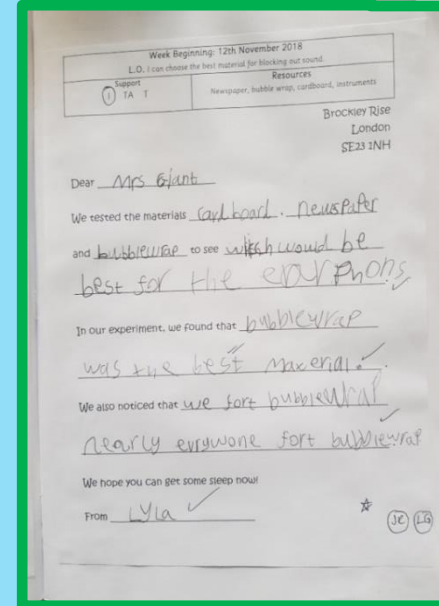 Week Beginning: 12th November 2018
L.O. I can choose the best material for blocking out sound.
Support
I TA T
Resources
Newspaper, bubble wrap, cardboard, instruments
Brockley Rise
London
SE23 1NH
Dear Mrs Giant
We tested the materials cardboard, newspaper
and bubblewrap to see which would be
best for the earphons
In our experiment, we found that bubblewrap
was the best material.
We also noticed that we fort bubblewrap
nearly evrywone fort bubblewrap
We hope you can get some sleep now!
From Lyla
JC LG